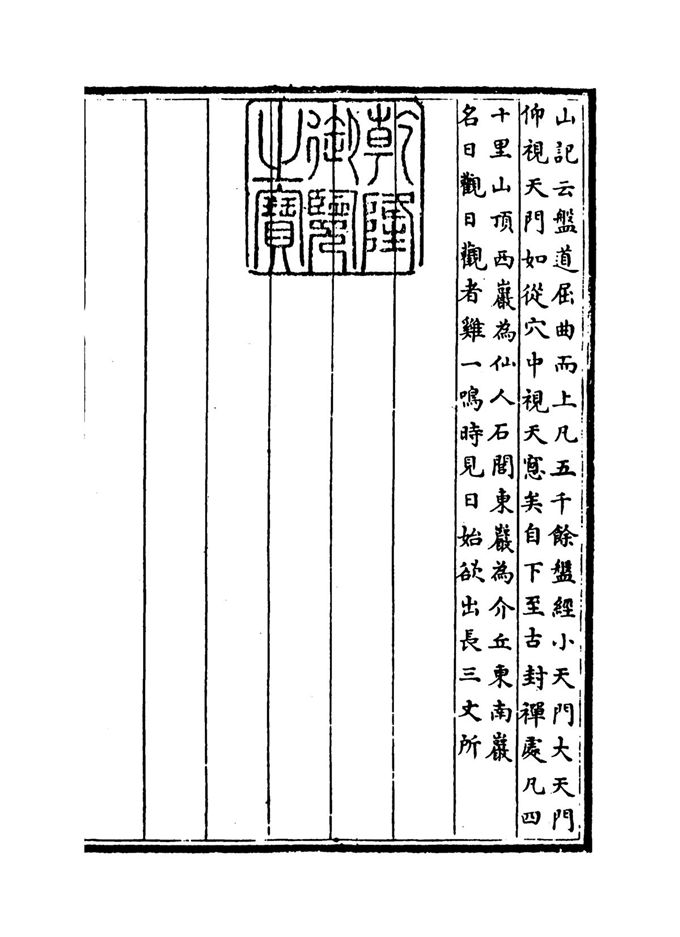 山記云盤道屈曲而上凡五千餘盤經小天門大天門
仰視天門如從穴中視天窓矣自下至古封禪處凡四
十里山頂西巖為仙人石閭東巖為介丘東南巖
名日觀日觀者雞一鳴時見日始欲出長三丈所
乾隆
御覽
之寶